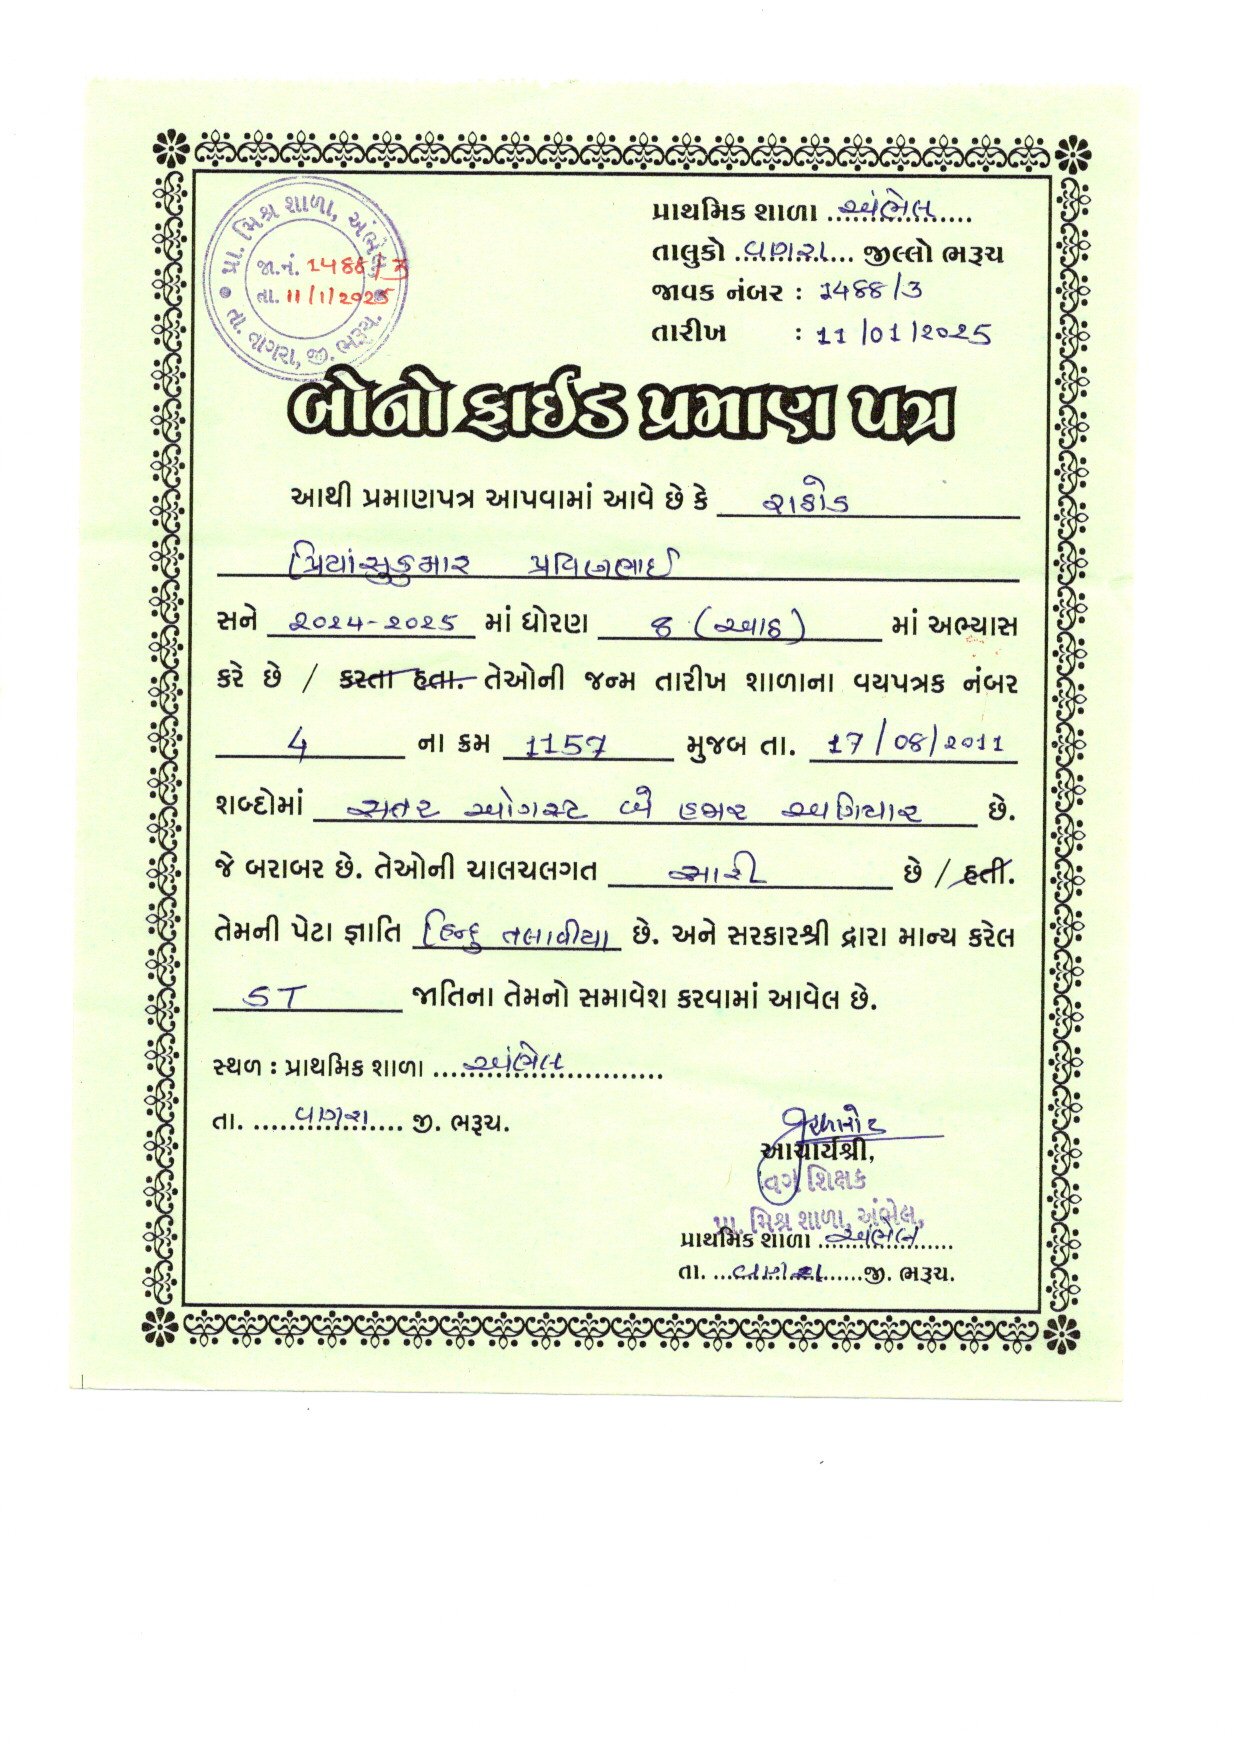 પ્રા. મિશ્ર શાળા, અંભેલ
જા.નં. 1488/3
તા. 11/1/2025
તા. વાગરા, જી. ભરૂચ.
પ્રાથમિક શાળા ..અંભેલ..
તાલુકો ..વાગરા.. જીલ્લો ભરૂચ
જાવક નંબર : 1488/3
તારીખ : 11/01/2025
બોનોફાઈડ પ્રમાણ પત્ર
આથી પ્રમાણપત્ર આપવામાં આવે છે કે રાઠોડ
પ્રિયાંસુકુમાર પ્રવિણભાઈ
સને 2024-2025 માં ધોરણ 8 (આઠ) માં અભ્યાસ
કરે છે / કરતા હતા. તેઓની જન્મ તારીખ શાળાના વયપત્રક નંબર
4 ના ક્રમ 1157 મુજબ તા. 17/08/2011
શબ્દોમાં સતર ઓગસ્ટ બે હજાર અગિયાર છે.
જે બરાબર છે. તેઓની ચાલચલગત સારી છે / હતી.
તેમની પેટા જ્ઞાતિ હિન્દુ તલાવીયા છે. અને સરકારશ્રી દ્વારા માન્ય કરેલ
ST જાતિના તેમનો સમાવેશ કરવામાં આવેલ છે.
સ્થળ : પ્રાથમિક શાળા ..અંભેલ..
તા. ..વાગરા.. જી. ભરૂચ.
આચાર્યશ્રી,
વર્ગ શિક્ષક
પ્રા. મિશ્ર શાળા, અંભેલ,
પ્રાથમિક શાળા ..અંભેલ..
તા. ..વાગરા..જી. ભરૂચ.